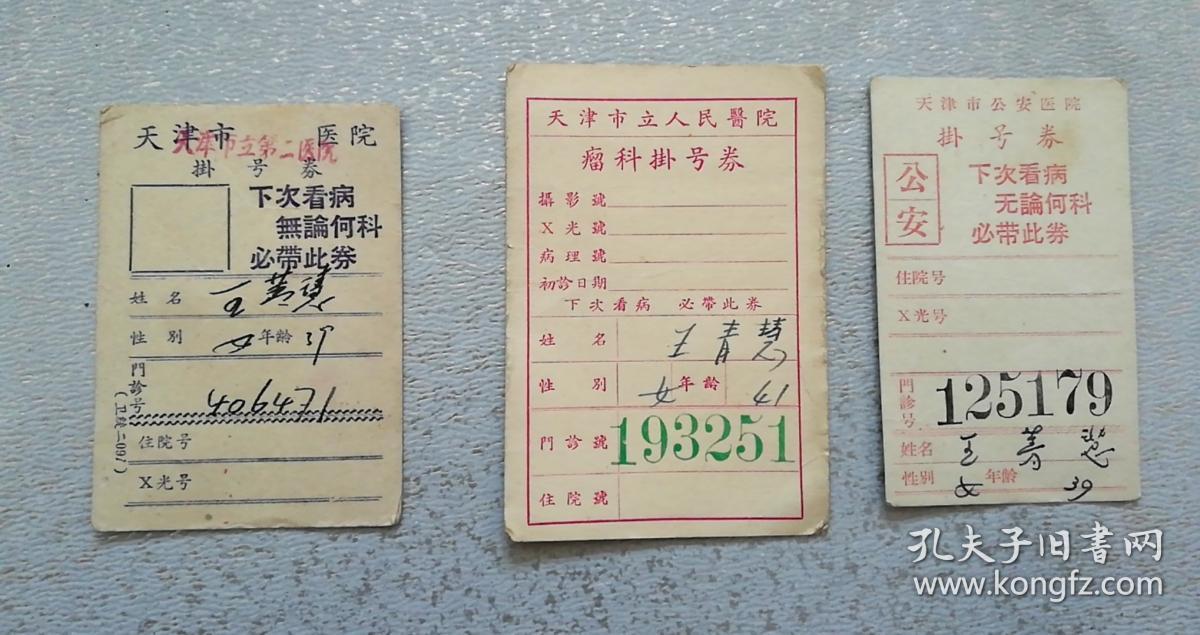 天津市 医院
天津市立第二医院
掛号券
下次看病
無論何科
必带此券
姓名 王菁慧
性别 女 年龄 39
門診号 406471
住院号
X光号
天津市立人民醫院
瘤科掛号券
攝影號
X光號
病理號
初診日期
下次看病 必帶此券
姓名 王青慧
性别 女 年齡 41
門診號 193251
住院號
天津市公安医院
掛号券
公安
下次看病
无論何科
必带此券
住院号
X光号
門診号 125179
姓名 王菁慧
性别 女 年龄 39
孔夫子旧书网
www.kongfz.com